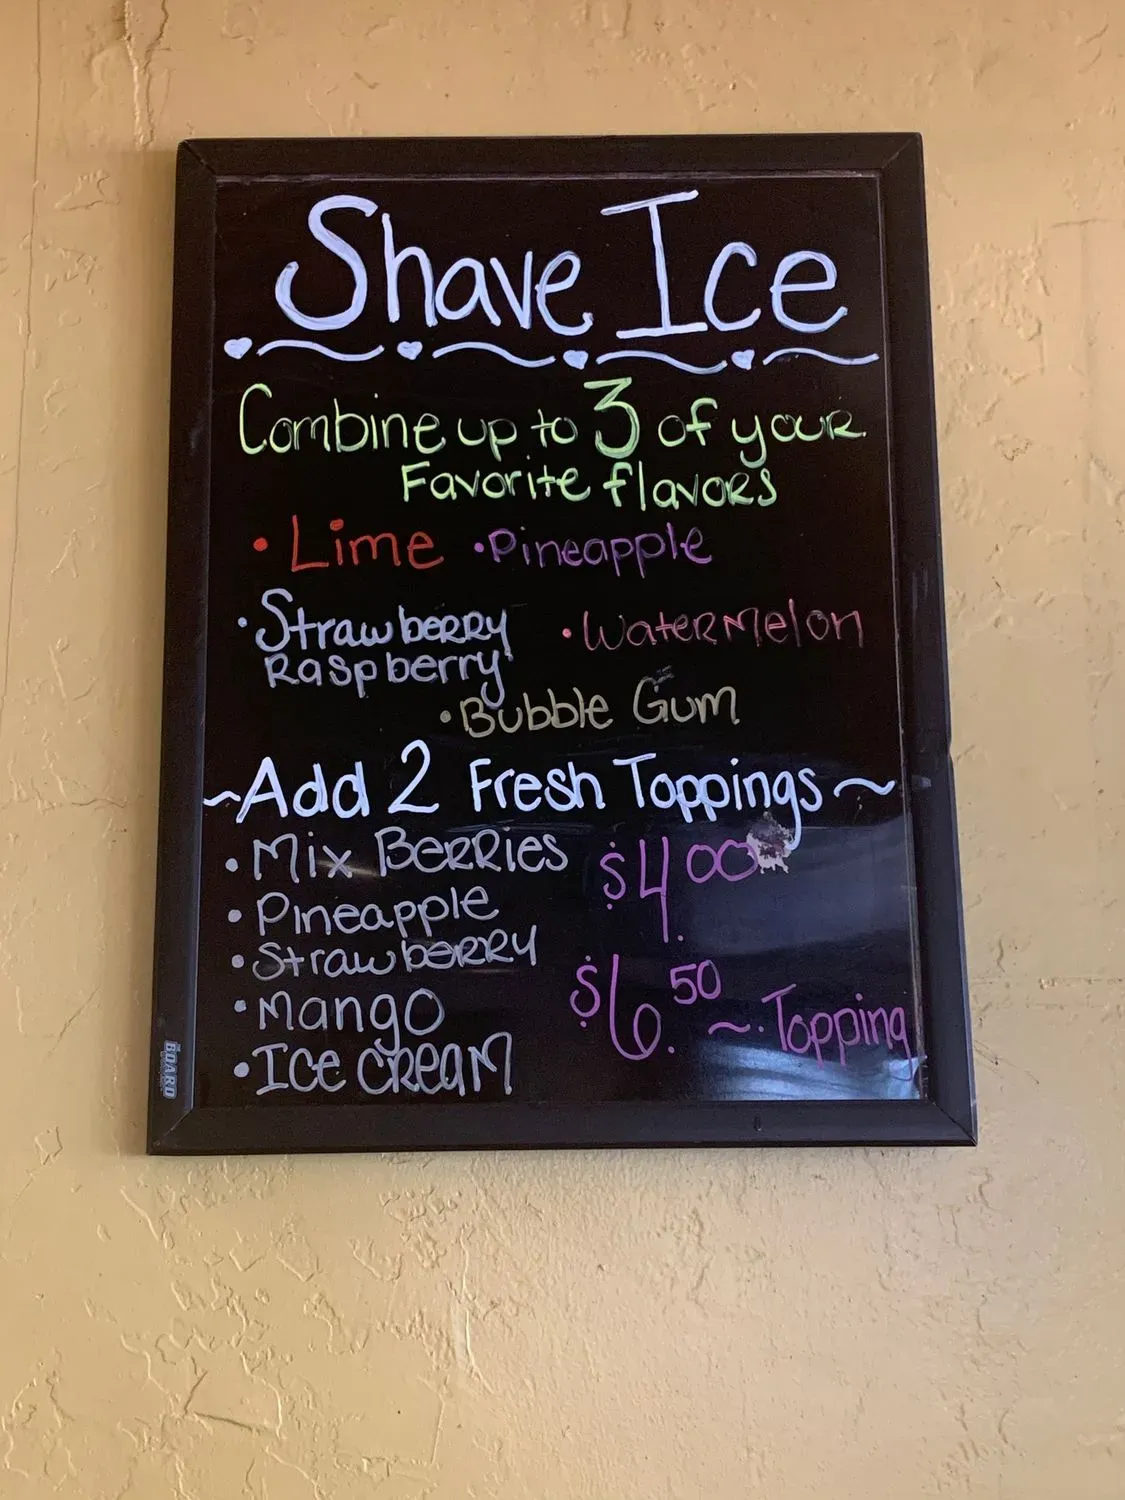 Shave Ice
Combine up to 3 of your
Favorite flavors
• Lime • Pineapple
• Strawberry • Watermelon
Raspberry
• Bubble Gum
~Add 2 Fresh Toppings~
• Mix Berries $4.00
• Pineapple
• Strawberry
• Mango $6.50 ~ Topping
• Ice Cream
BOARD